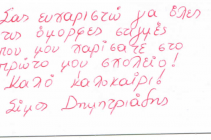 Σας ευχαριστώ για όλες
τις όμορφες στιγμές
που μου χαρίσατε στο
πρώτο μου σχολείο!
Καλό καλοκαίρι!
Σίμος Δημητριάδης